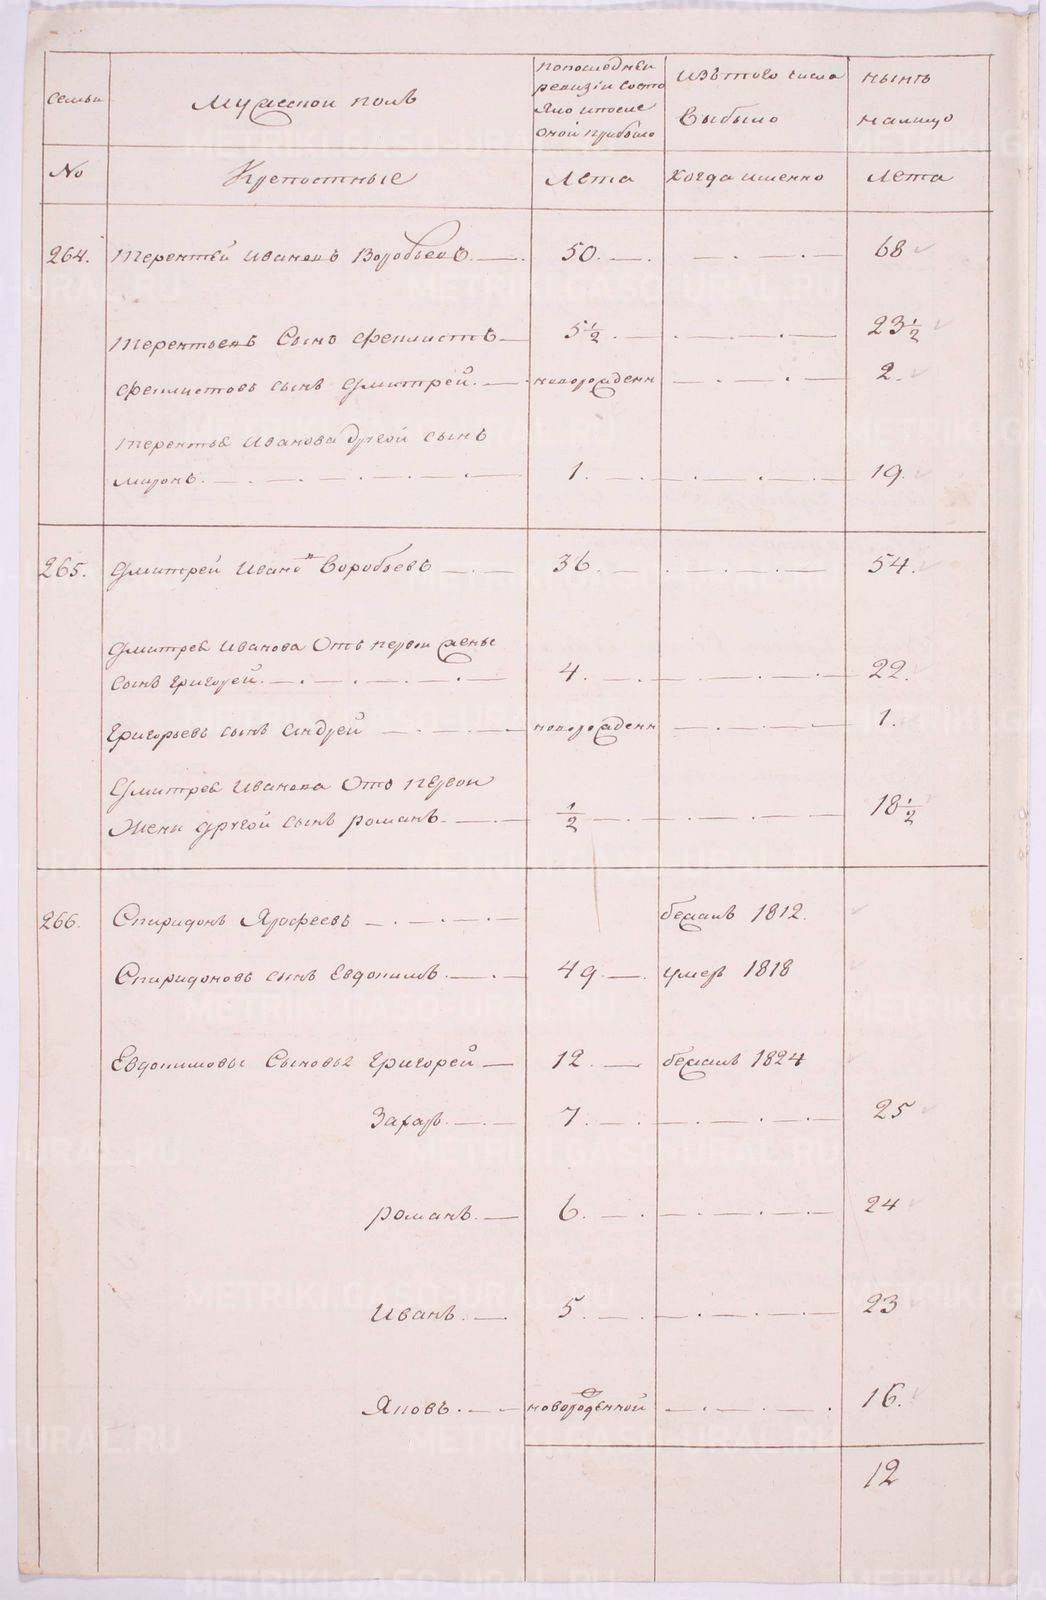 семьи
Мужескои полъ
попоследней
ревизiи состо
яло ипосле
оной прибыло
Изътого числа
выбыло
ныне
налицо
No
Крепостные
Лета
Когда имянно
Лета
264. терентей ивановъ Воробьевъ 50. 68
терентьевъ Сынъ феплистъ 5 1/2 23 1/2
феплистовъ сынъ дмитрей. новорожденн 2.
терентья Иванова другой сынъ
миронъ. 1. 19.
265. дмитрей Ивано въ Воробьевъ 36. 54.
дмитрея иванова Отъ первои жены
сынъ григорей. 4. 22.
григорьевъ сынъ андрей новорожденн 1.
дмитрея иванова Отъ первои
жены другой сынъ романъ. 1/2 18 1/2
266. Спиридонъ Ярофеевъ бежалъ 1812.
Спиридоновъ сынъ Евдокимъ. 49. умеръ 1818
Евдокимовы Сыновья григорей 12. бежалъ 1824
Захаръ. 7. 25
романъ. 6. 24
иванъ. 5. 23
Яковъ. новорожденной 16.
12
METRIKI.GASO-URAL.RU